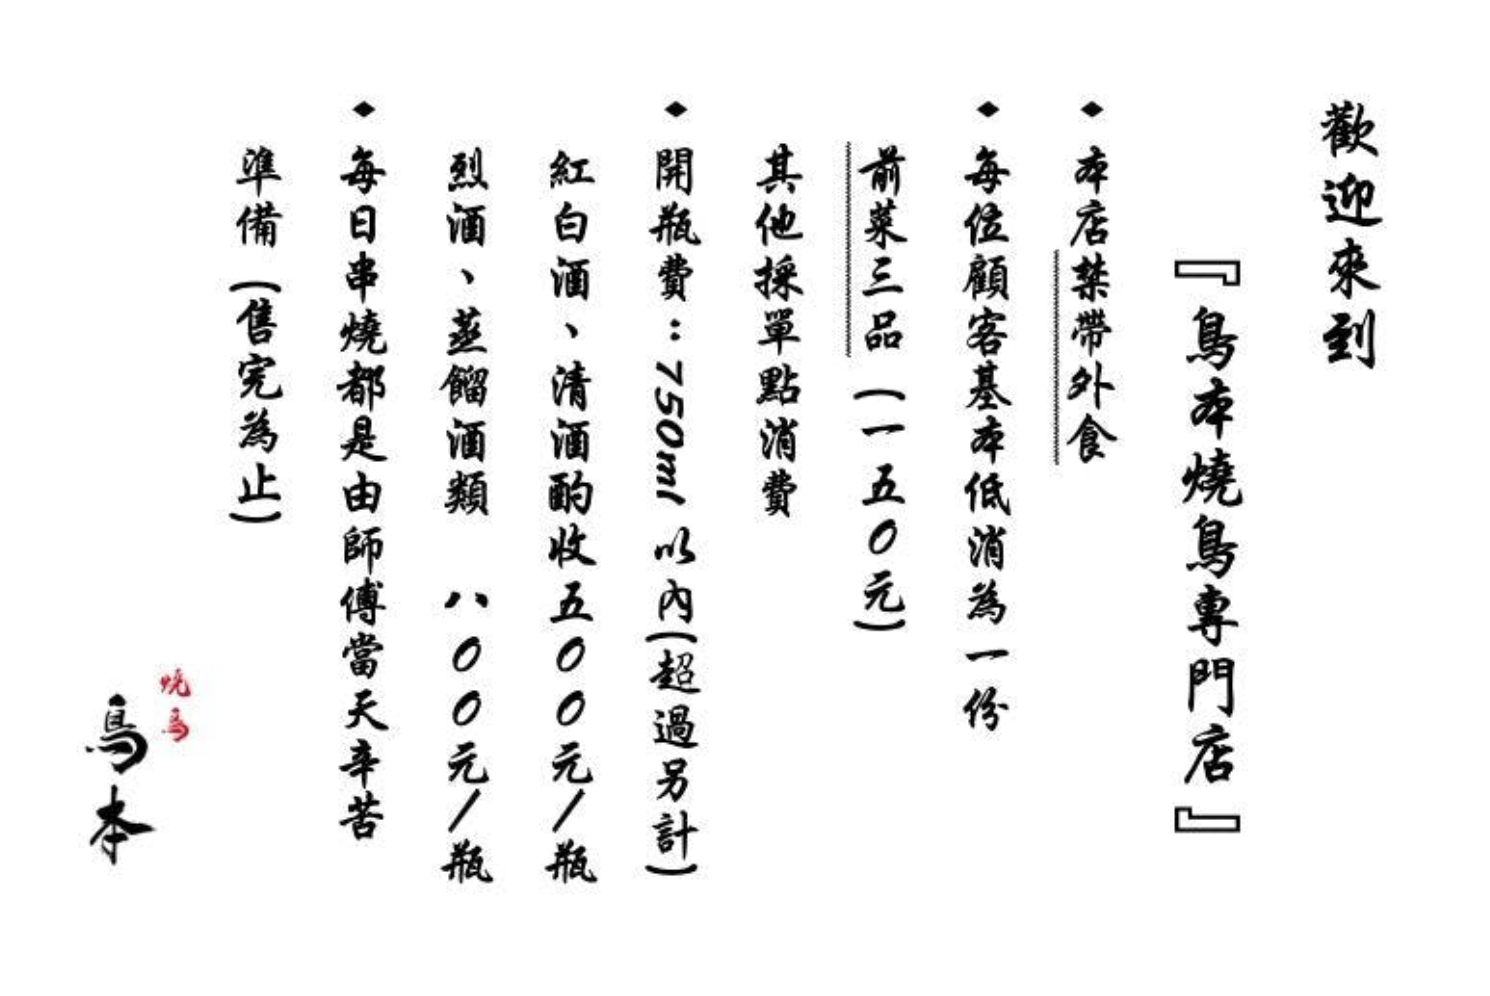 歡迎來到
『鳥本燒鳥專門店』
◆本店禁帶外食
◆每位顧客基本低消為一份
前菜三品(一五0元)
其他採單點消費
◆開瓶費：750ml以內(超過另計)
紅白酒、清酒酌收五00元/瓶
烈酒、蒸餾酒類 八00元/瓶
◆每日串燒都是由師傅當天辛苦
準備(售完為止)
燒鳥
鳥本